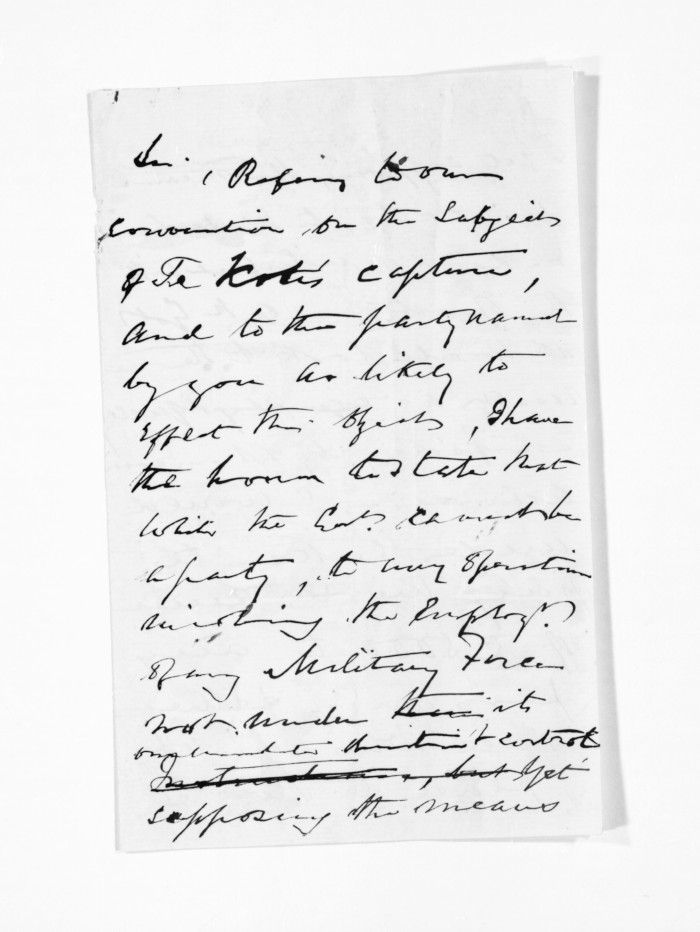 Sir,
Refering to our
convention on the Subject
of Te Kooti's capture,
and to the party named
by you as likely to
Effect this Object, I have
the honor to state that
while the Govt. cannot be
a party, to any operation
involving the Employt.
of any Military Force
not under their its
own immediate direction & control
Instructions, but yet
supposing the means